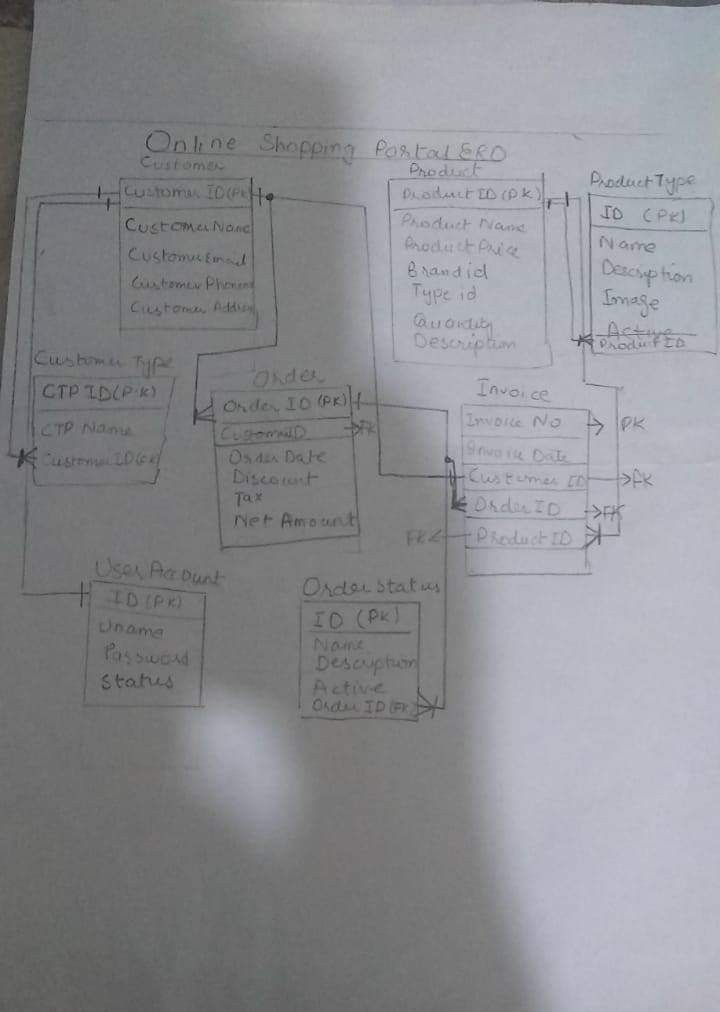 Online Shopping Portal ERD
Customer
Customer ID(PK)
Customer Name
Customer Email
Customer Phone
Customer Address
Product
Product ID (PK)
Product Name
Product Price
Brand id
Type id
Quantity
Description
Product Type
ID (PK)
Name
Description
Image
Active
Product ID
Customer Type
CTP ID(P.K)
CTP Name
Customer ID(FK)
Order
Order ID (PK)
Customer ID FK
Order Date
Discount
Tax
Net Amount
Invoice
Invoice No PK
Invoice Date
Customer ID FK
Order ID FK
FK Product ID
User Account
ID (PK)
Uname
Password
Status
Order Status
ID (PK)
Name
Description
Active
Order ID (FK)